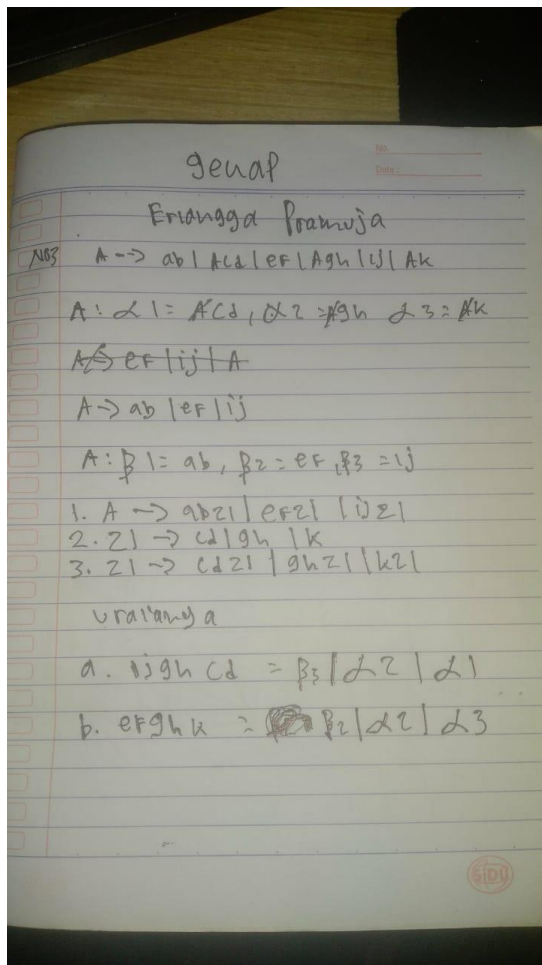 No.
Date:
genap
Erlangga Pramuja
A --> ab | Acd | eF | Agh | ij | Ak
A: α1 = Acd, α2 = Agh α3 = Ak
A -> eF | ij | A
A -> ab | eF | ij
A: β1 = ab, β2 = eF, β3 = ij
1. A -> abz1 | eFz1 | ijz1
2. z1 -> cd | gh | k
3. z1 -> cdz1 | ghz1 | kz1
uraianya
a. ijgh cd = β3 | α2 | α1
b. eFghk = β2 | α2 | α3
SIDU